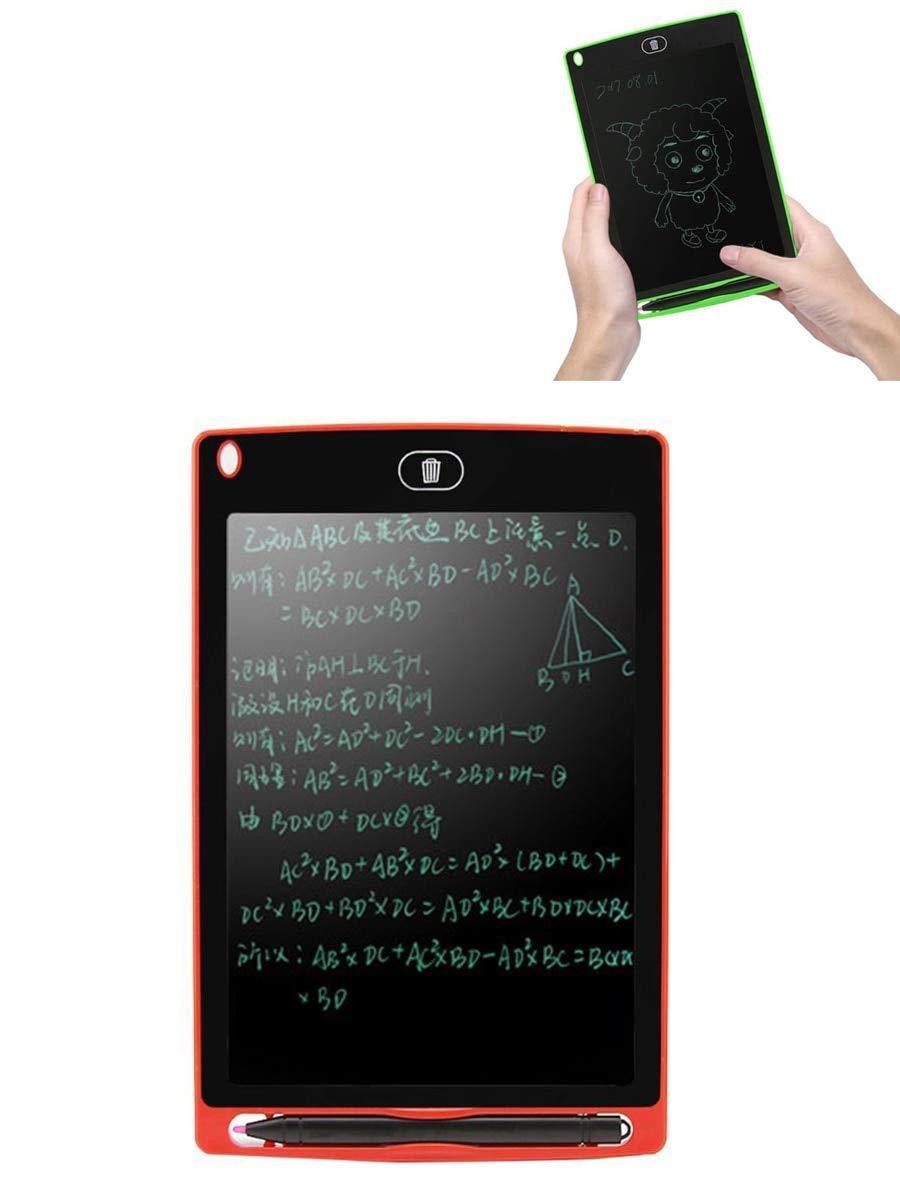 2017.08.01
已知△ABC及其底边BC上任意一点D.
则有: AB²×DC+AC²×BD-AD²×BC
=BC×DC×BD
A
B D H C
证明: 作AH⊥BC于H.
假设H和C在D同侧
则有: AC²=AD²+DC²-2DC·DH-①
同理: AB²=AD²+BC²+2BD·DH-②
由BD×①+DC×②得
AC²×BD+AB²×DC=AD²×(BD+DC)+
DC²×BD+BD²×DC=AD²×BC+BD×DC×BC
所以: AB²×DC+AC²×BD-AD²×BC=BC×DC
×BD